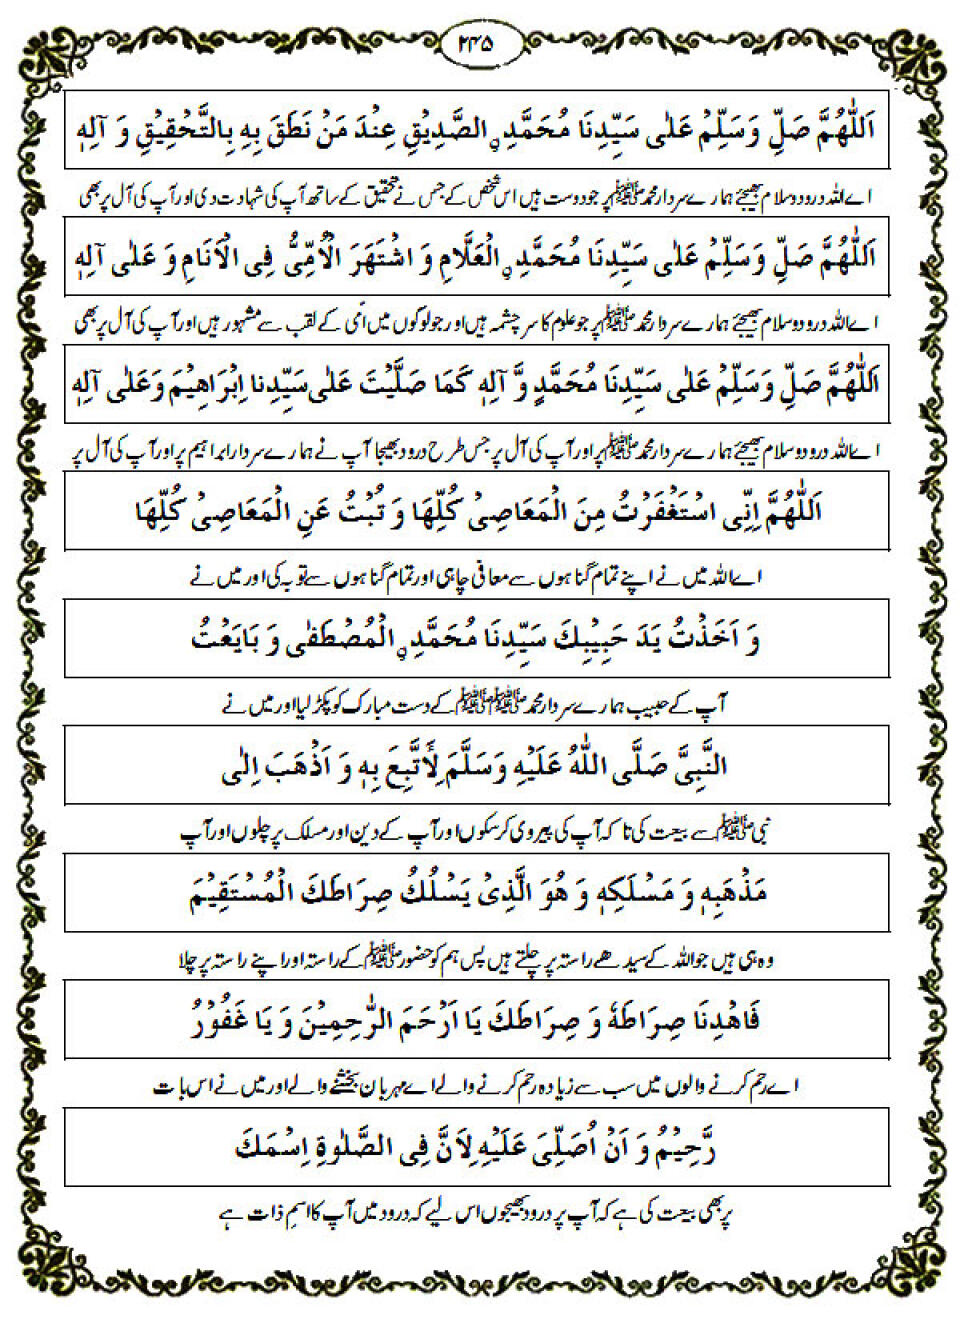 ۲۴۵
اَللّٰهُمَّ صَلِّ وَسَلِّمْ عَلٰى سَيِّدِنَا مُحَمَّدِ ۣ الصَّدِيْقِ عِنْدَ مَنْ نَطَقَ بِهٖ بِالتَّحْقِيْقِ وَ آلِهٖ
اے اللہ درود و سلام بھیجئے ہمارے سردار محمد ﷺ پر جو دوست ہیں اس شخص کے جس نے تحقیق کے ساتھ آپ کی شہادت دی اور آپ کی آل پر بھی
اَللّٰهُمَّ صَلِّ وَسَلِّمْ عَلٰى سَيِّدِنَا مُحَمَّدِ ۣ الْعَلَّامِ وَ اشْتَهَرَ الْاُمِّىُّ فِى الْاَنَامِ وَ عَلٰى آلِهٖ
اے اللہ درود و سلام بھیجئے ہمارے سردار محمد ﷺ پر جو علوم کا سرچشمہ ہیں اور جو لوگوں میں امی کے لقب سے مشہور ہیں اور آپ کی آل پر بھی
اَللّٰهُمَّ صَلِّ وَسَلِّمْ عَلٰى سَيِّدِنَا مُحَمَّدٍ وَّ آلِهٖ كَمَا صَلَّيْتَ عَلٰى سَيِّدِنا اِبْرَاهِيْمَ وَعَلٰى آلِهٖ
اے اللہ درود و سلام بھیجئے ہمارے سردار محمد ﷺ پر اور آپ کی آل پر جس طرح درود بھیجا آپ نے ہمارے سردار ابراہیم پر اور آپ کی آل پر
اَللّٰهُمَّ اِنِّى اسْتَغْفَرْتُ مِنَ الْمَعَاصِىْ كُلِّهَا وَ تُبْتُ عَنِ الْمَعَاصِىْ كُلِّهَا
اے اللہ میں نے اپنے تمام گناہوں سے معافی چاہی اور تمام گناہوں سے توبہ کی اور میں نے
وَ اَخَذْتُ يَدَ حَبِيْبِكَ سَيِّدِنَا مُحَمَّدِ ۣ الْمُصْطَفٰى وَ بَايَعْتُ
آپ کے حبیب ہمارے سردار محمد ﷺ ﷺ کے دست مبارک کو پکڑ لیا اور میں نے
النَّبِىَّ صَلَّى اللّٰهُ عَلَيْهِ وَسَلَّمَ لِأَتَّبِعَ بِهٖ وَ اَذْهَبَ اِلٰى
نبی ﷺ سے بیعت کی تاکہ آپ کی پیروی کر سکوں اور آپ کے دین اور مسلک پر چلوں اور آپ
مَذْهَبِهٖ وَ مَسْلَكِهٖ وَ هُوَ الَّذِىْ يَسْلُكُ صِرَاطَكَ الْمُسْتَقِيْمَ
وہ ہی ہیں جو اللہ کے سیدھے راستہ پر چلتے ہیں پس ہم کو حضور ﷺ کے راستہ اور اپنے راستہ پر چلا
فَاهْدِنَا صِرَاطَهٗ وَ صِرَاطَكَ يَا اَرْحَمَ الرّٰحِمِيْنَ وَ يَا غَفُوْرُ
اے رحم کرنے والوں میں سب سے زیادہ رحم کرنے والے اے مہربان بخشنے والے اور میں نے اس بات
رَّحِيْمُ وَ اَنْ اُصَلِّىَ عَلَيْهِ لِاَنَّ فِى الصَّلٰوةِ اِسْمَكَ
پر بھی بیعت کی ہے کہ آپ پر درود بھیجوں اس لیے کہ درود میں آپ کا اسمِ ذات ہے